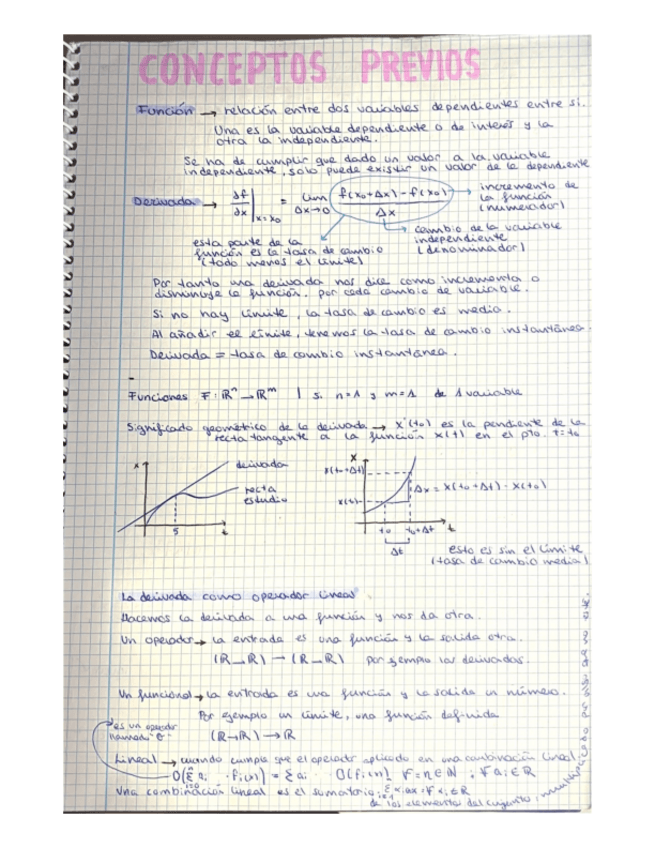 CONCEPTOS PREVIOS
Función → relación entre dos variables dependientes entre sí.
Una es la variable dependiente o de interés y la
otra la independiente.
Se ha de cumplir que dado un valor a la variable
independiente, solo puede existir un valor de la dependiente
Derivada → df/dx |x=x₀ = Lim Δx→0 f(x₀+Δx)-f(x₀) / Δx → incremento de
la función
(numerador)
cambio de la variable
independiente
(denominador)
esta parte de la
función es la tasa de cambio
(todo menos el límite)
Por tanto una derivada nos dice como incrementa o
disminuye la función, por cada cambio de variable.
Si no hay límite, la tasa de cambio es media.
Al añadir el límite, tenemos la tasa de cambio instantánea.
Derivada = tasa de cambio instantánea.
Funciones F: ℝⁿ → ℝᵐ | si n=1 y m=1 de 1 variable
Significado geométrico de la derivada → x'(t₀) es la pendiente de la
recta tangente a la función x(t) en el pto. t=t₀
x derivada
recta
estudio
5 t
x
x(t₀+Δt)
x(t₀)
Δx = x(t₀+Δt) - x(t₀)
t₀ t₀+Δt t
Δt
esto es sin el límite
(tasa de cambio media)
La derivada como operador lineal
Hacemos la derivada a una función y nos da otra.
Un operador → la entrada es una función y la salida otra.
(ℝ→ℝ) → (ℝ→ℝ) por ejemplo las derivadas.
Un funcional → la entrada es una función y la salida un número.
Por ejemplo un límite, una función definida
(ℝ→ℝ) → ℝ
es un operador
llamado "O"
Lineal → cuando cumple que el operador aplicado en una combinación lineal
O(Σ aᵢ · fᵢ(x)) = Σ aᵢ · O(fᵢ(x)) ∀ n∈ℕ ; ∀ aᵢ∈ℝ
Una combinación lineal es el sumatorio
de los elementos del conjunto,